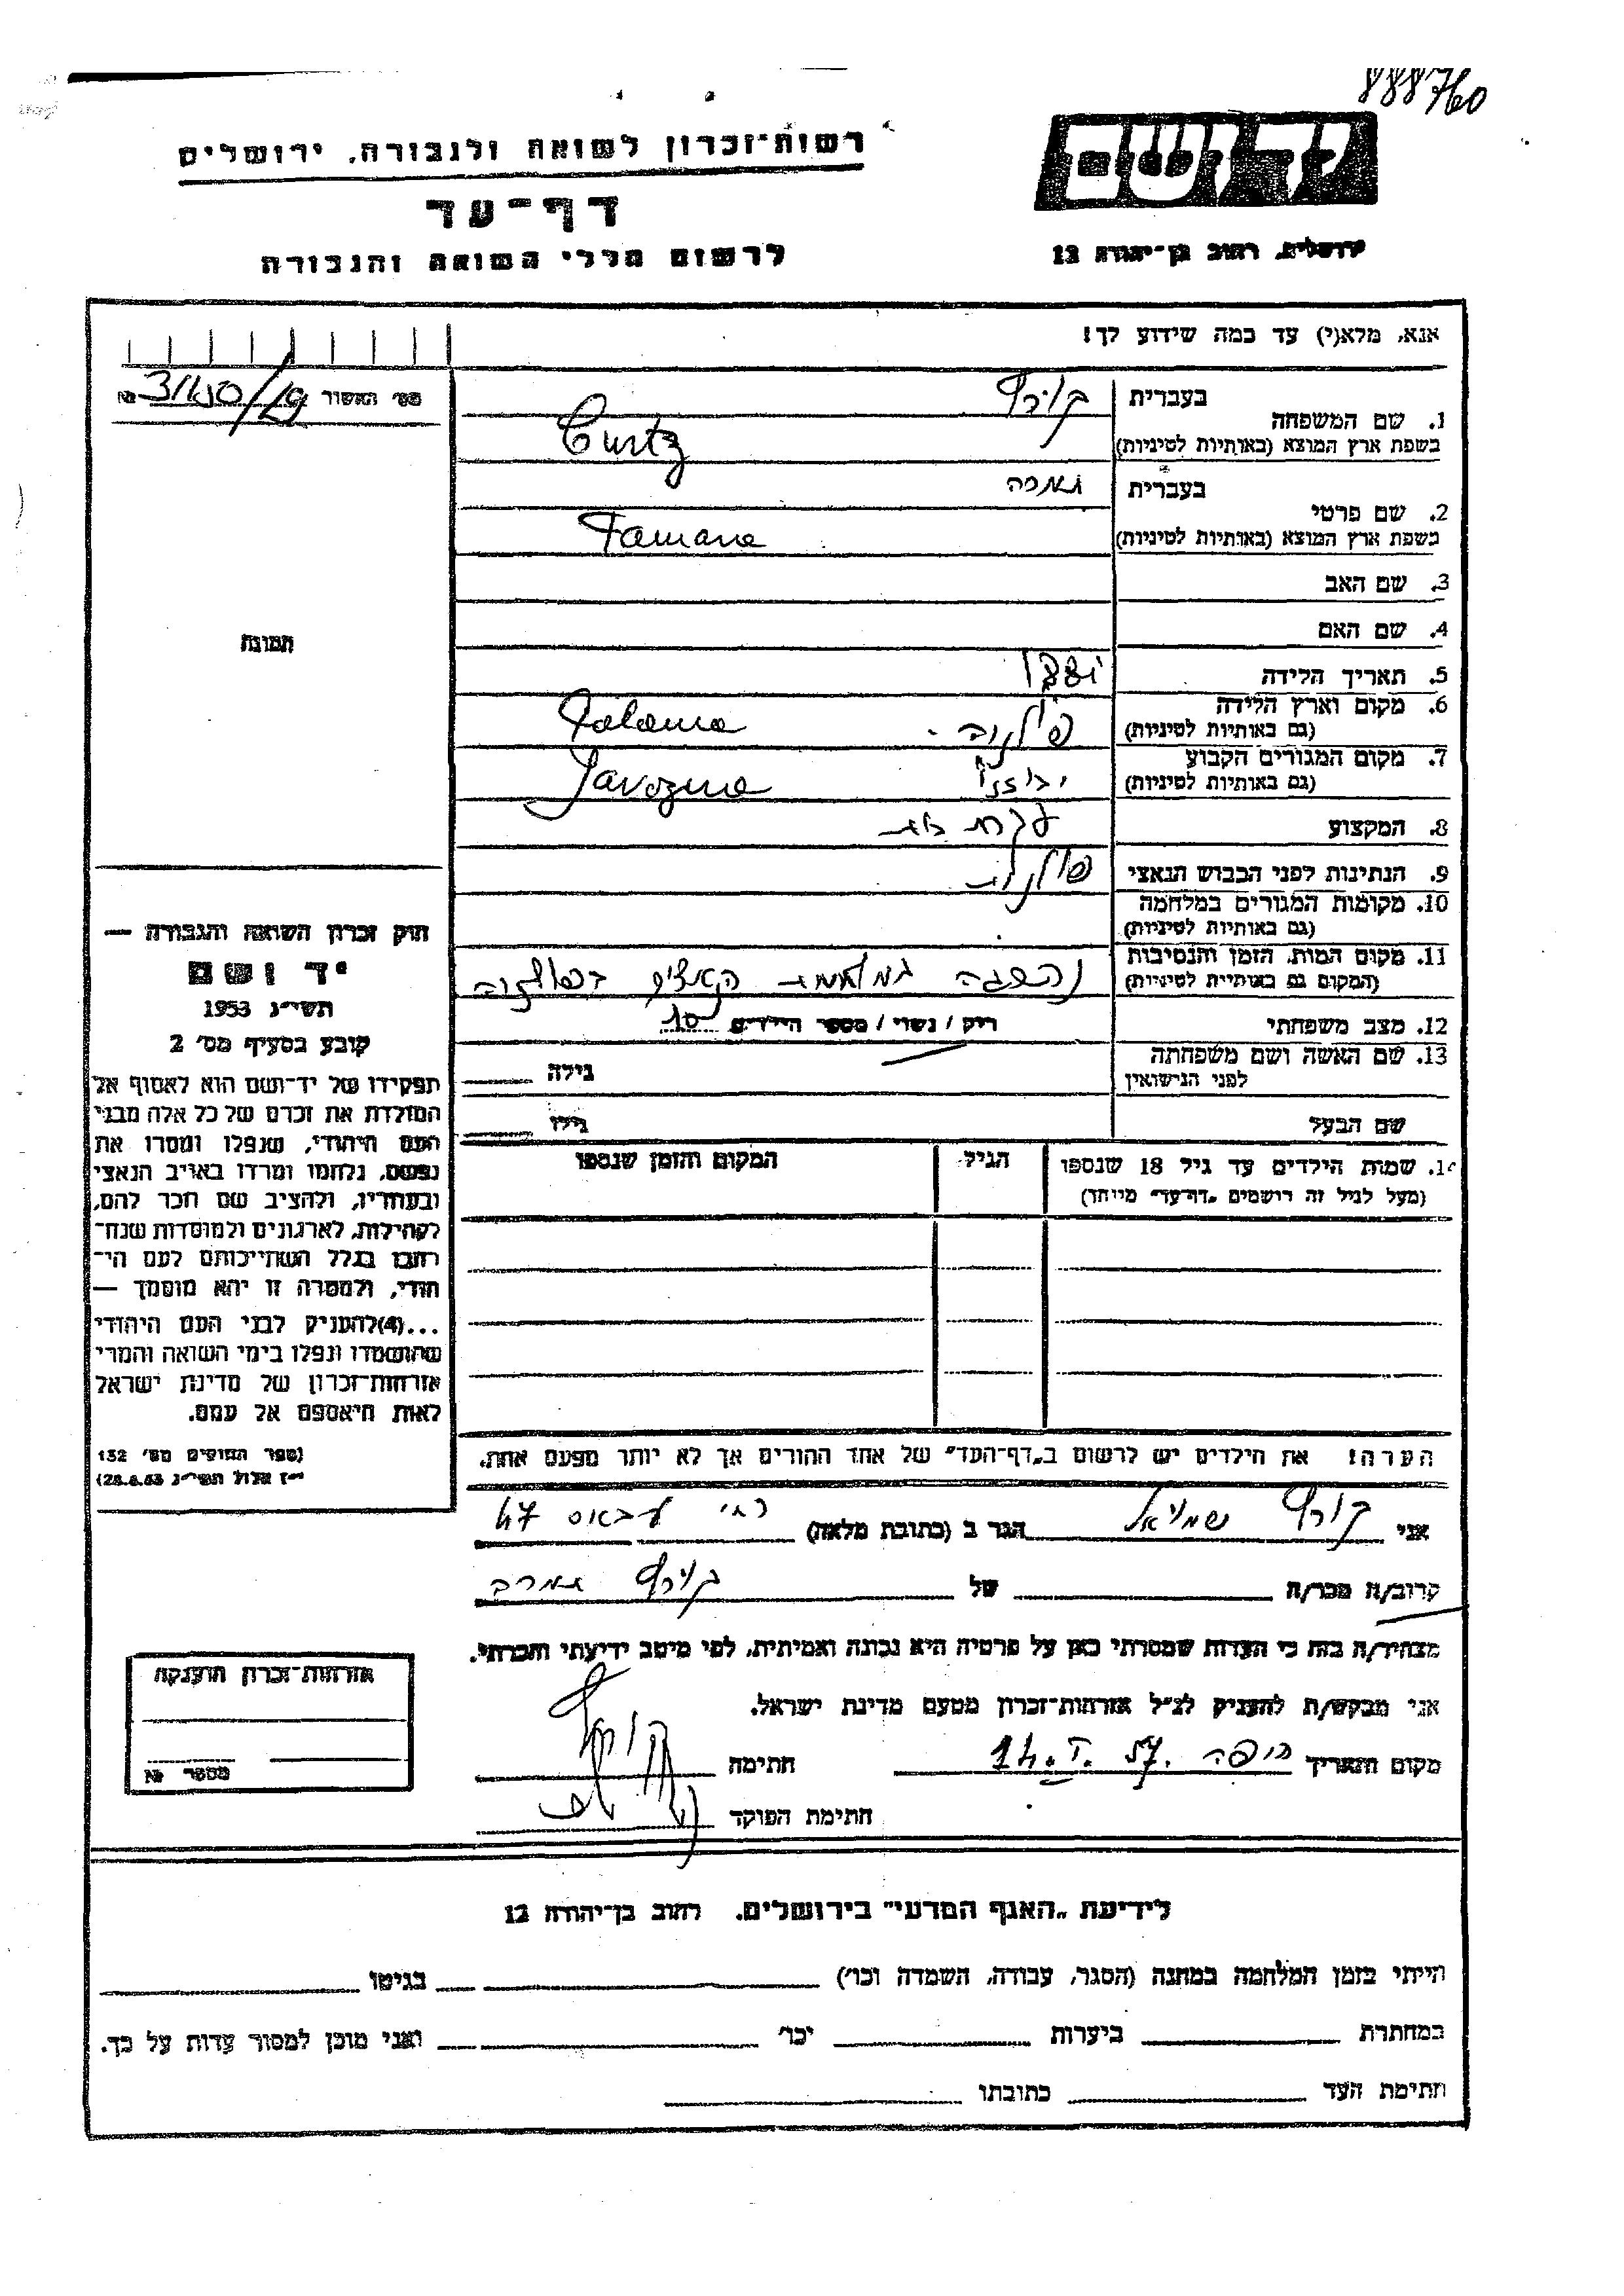 888760
יד ושם
רשות־זכרון לשואה ולגבורה, ירושלים
דף־עד
לרשום חללי השואה והגבורה
ירושלים, רחוב בן־יהודה 12
אנא, מלא(י) עד כמה שידוע לך!
מס׳ האשור №
1. שם המשפחה
בעברית קורץ
בשפת ארץ המוצא (באותיות לטיניות) Curtz
2. שם פרטי
בעברית
בשפת ארץ המוצא (באותיות לטיניות)
3. שם האב
4. שם האם
תמונה
5. תאריך הלידה
6. מקום וארץ הלידה
(גם באותיות לטיניות)
7. מקום המגורים הקבוע
(גם באותיות לטיניות)
8. המקצוע עקרת בית
9. הנתינות לפני הכבוש הנאצי פולנית
10. מקומות המגורים במלחמה
(גם באותיות לטיניות)
11. מקום המות, הזמן והנסיבות
(המקום גם באותיות לטיניות)
12. מצב משפחתי רוק / נשוי / מספר הילדים
13. שם האשה ושם משפחתה
לפני הנישואין
גילה
שם הבעל גילו
14. שמות הילדים עד גיל 18 שנספו
(מעל לגיל זה רושמים „דף־עד״ מיוחד)
הגיל
המקום והזמן שנספו
חוק זכרון השואה והגבורה —
יד ושם
תשי״ג 1953
קובע בסעיף מס׳ 2
תפקידו של יד־ושם הוא לאסוף אל
המולדת את זכרם של כל אלה מבני
העם היהודי, שנפלו ומסרו את
נפשם, נלחמו ומרדו באויב הנאצי
ובעוזריו, ולהציב שם וזכר להם,
לקהילות, לארגונים ולמוסדות שנח־
רבו בגלל השתייכותם לעם הי־
הודי, ולמטרה זו יהא מוסמך —
...(4)להעניק לבני העם היהודי
שהושמדו ונפלו בימי השואה והמרי
אזרחות־זכרון של מדינת ישראל
לאות היאספם אל עמם.
(ספר החוקים מס׳ 132
י״ז אלול תשי״ג 28.8.53)
הערה! את הילדים יש לרשום ב„דף־העד״ של אחד ההורים אך לא יותר מפעם אחת.
אני קורץ שמואל הגר ב (כתובת מלאה) רח׳ עבאס 47
קרוב/ה מכר/ה של קורץ
מצהיר/ה בזה כי העדות שמסרתי כאן על פרטיה היא נכונה ואמיתית, לפי מיטב ידיעתי והכרתי.
אני מבקש/ת להעניק לנ״ל אזרחות־זכרון מטעם מדינת ישראל.
מקום ותאריך חיפה חתימה
חתימת הפוקד
אזרחות־זכרון הוענקה
מספר №
לידיעת „האגף המדעי״ בירושלים, רחוב בן־יהודה 12
הייתי בזמן המלחמה במחנה (הסגר, עבודה, השמדה וכו׳) בגיטו
במחתרת ביערות וכו׳ ואני מוכן למסור עדות על כך.
חתימת העד כתובתו